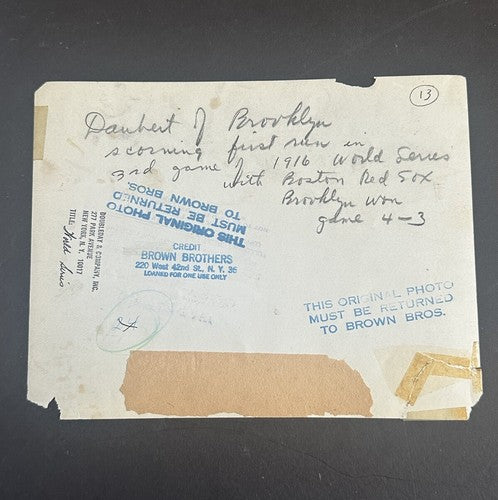 13
Daubert of Brooklyn
scorning first run in
3rd game of 1916 World Series
with Boston Red Sox
Brooklyn won
game 4-3
THIS ORIGINAL PHOTO
MUST BE RETURNED
TO BROWN BROS.
CREDIT
BROWN BROTHERS
220 West 42nd St., N. Y. 36
LOANED FOR ONE USE ONLY
DOUBLEDAY & COMPANY, INC.
277 PARK AVENUE
NEW YORK, N. Y. 10017
TITLE: World Series
THIS ORIGINAL PHOTO
MUST BE RETURNED
TO BROWN BROS.